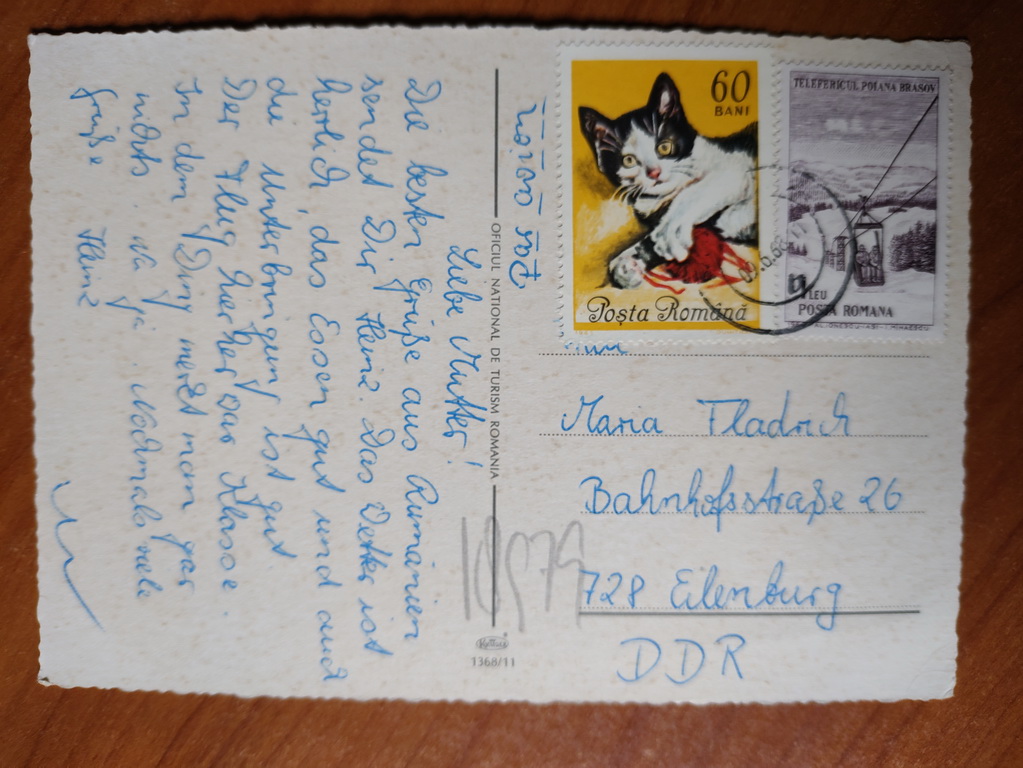 Liebe Mutter!
Die besten Grüße aus Rumänien
sendet Dir Heinz. Das Wetter ist
herlich das Essen gut und auch
die Unterbringung ist gut
Der Flug hierher war Klasse.
In dem Ding merkt man gar
nichts. Na ja. Nochmals viele
Grüße Heinz
OFICIUL NATIONAL DE TURISM ROMANIA
1368/11
60
BANI
Poșta Română
TELEFERICUL POIANA BRASOV
1 LEU
POSTA ROMANA
Maria Fladrich
Bahnhofsstraße 26
728 Eilenburg
DDR